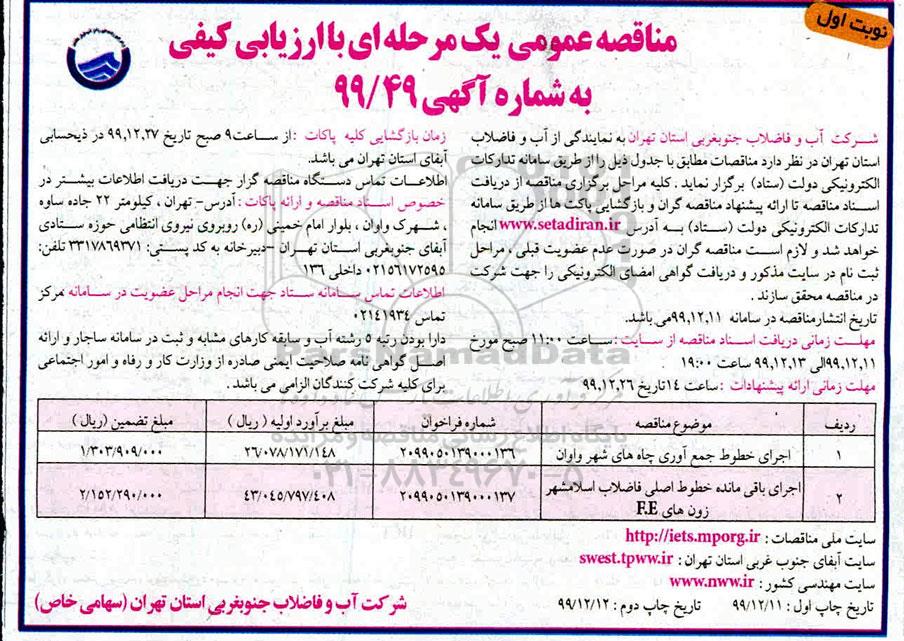 نوبت اول
مناقصه عمومی یک مرحله ای با ارزیابی کیفی
به شماره آگهی ۹۹/۴۹
شرکت آب و فاضلاب جنوبغربی استان تهران به نمایندگی از آب و فاضلاب
استان تهران در نظر دارد مناقصات مطابق با جدول ذیل را از طریق سامانه تدارکات
الکترونیکی دولت (ستاد) برگزار نماید. کلیه مراحل برگزاری مناقصه از دریافت
اسناد مناقصه تا ارائه پیشنهاد مناقصه گران و بازگشایی پاکت ها از طریق سامانه
تدارکات الکترونیکی دولت (ستاد) به آدرس www.setadiran.ir انجام
خواهد شد و لازم است مناقصه گران در صورت عدم عضویت قبلی، مراحل
ثبت نام در سایت مذکور و دریافت گواهی امضای الکترونیکی را جهت شرکت
در مناقصه محقق سازند.
تاریخ انتشار مناقصه در سامانه ۹۹,۱۲,۱۱ می باشد.
مهلت زمانی دریافت اسناد مناقصه از سایت: ساعت ۱۱:۰۰ صبح مورخ
۹۹,۱۲,۱۱ الی ۹۹,۱۲,۱۳ ساعت ۱۹:۰۰ .
مهلت زمانی ارائه پیشنهادات : ساعت ۱۴ تاریخ ۹۹,۱۲,۲۶
زمان بازگشایی کلیه پاکات : از ساعت ۹ صبح تاریخ ۹۹,۱۲,۲۷ در ذیحسابی
آبفای استان تهران می باشد.
اطلاعات تماس دستگاه مناقصه گزار جهت دریافت اطلاعات بیشتر در
خصوص اسناد مناقصه و ارائه پاکات : آدرس- تهران ، کیلومتر ۲۲ جاده ساوه
، شهرک واوان ، بلوار امام خمینی (ره) روبروی نیروی انتظامی حوزه ستادی
آبفای جنوبغربی استان تهران -دبیرخانه به کد پستی: ۳۳۱۷۸۶۹۳۷۱ تلفن:
۰۲۱۵۶۱۷۲۵۹۵ داخلی ۱۳۶
اطلاعات تماس سامانه ستاد جهت انجام مراحل عضویت در سامانه مرکز
تماس ۰۲۱۴۱۹۳۴
دارا بودن رتبه ۵ رشته آب و سابقه کارهای مشابه و ثبت در سامانه ساجار و ارائه
اصل گواهی نامه صلاحیت ایمنی صادره از وزارت کار و رفاه و امور اجتماعی
برای کلیه شرکت کنندگان الزامی می باشد .
ParsNamadData
پایگاه اطلاع رسانی مناقصه و مزایده
۰۲۱-۸۸۳۴۹۶۷۰-۸
ردیف موضوع مناقصه شماره فراخوان مبلغ برآورد اولیه ( ریال ) مبلغ تضمین (ریال )
۱ اجرای خطوط جمع آوری چاه های شهر واوان ۲۰۹۹۰۵۰۱۳۹۰۰۰۱۳۶ ۲۶/۰۷۸/۱۷۱/۱۴۸ ۱/۳۰۳/۹۰۹/۰۰۰
۲ اجرای باقی مانده خطوط اصلی فاضلاب اسلامشهر ۲۰۹۹۰۵۰۱۳۹۰۰۰۱۳۷ ۴۳/۰۴۵/۷۹۷/۴۰۸ ۲/۱۵۲/۲۹۰/۰۰۰
زون های F.E
سایت ملی مناقصات : http://iets.mporg.ir
سایت آبفای جنوب غربی استان تهران : swest.tpww.ir
سایت مهندسی کشور : www.nww.ir
تاریخ چاپ اول : ۹۹/۱۲/۱۱ تاریخ چاپ دوم : ۹۹/۱۲/۱۲
شرکت آب و فاضلاب جنوبغربی استان تهران (سهامی خاص)